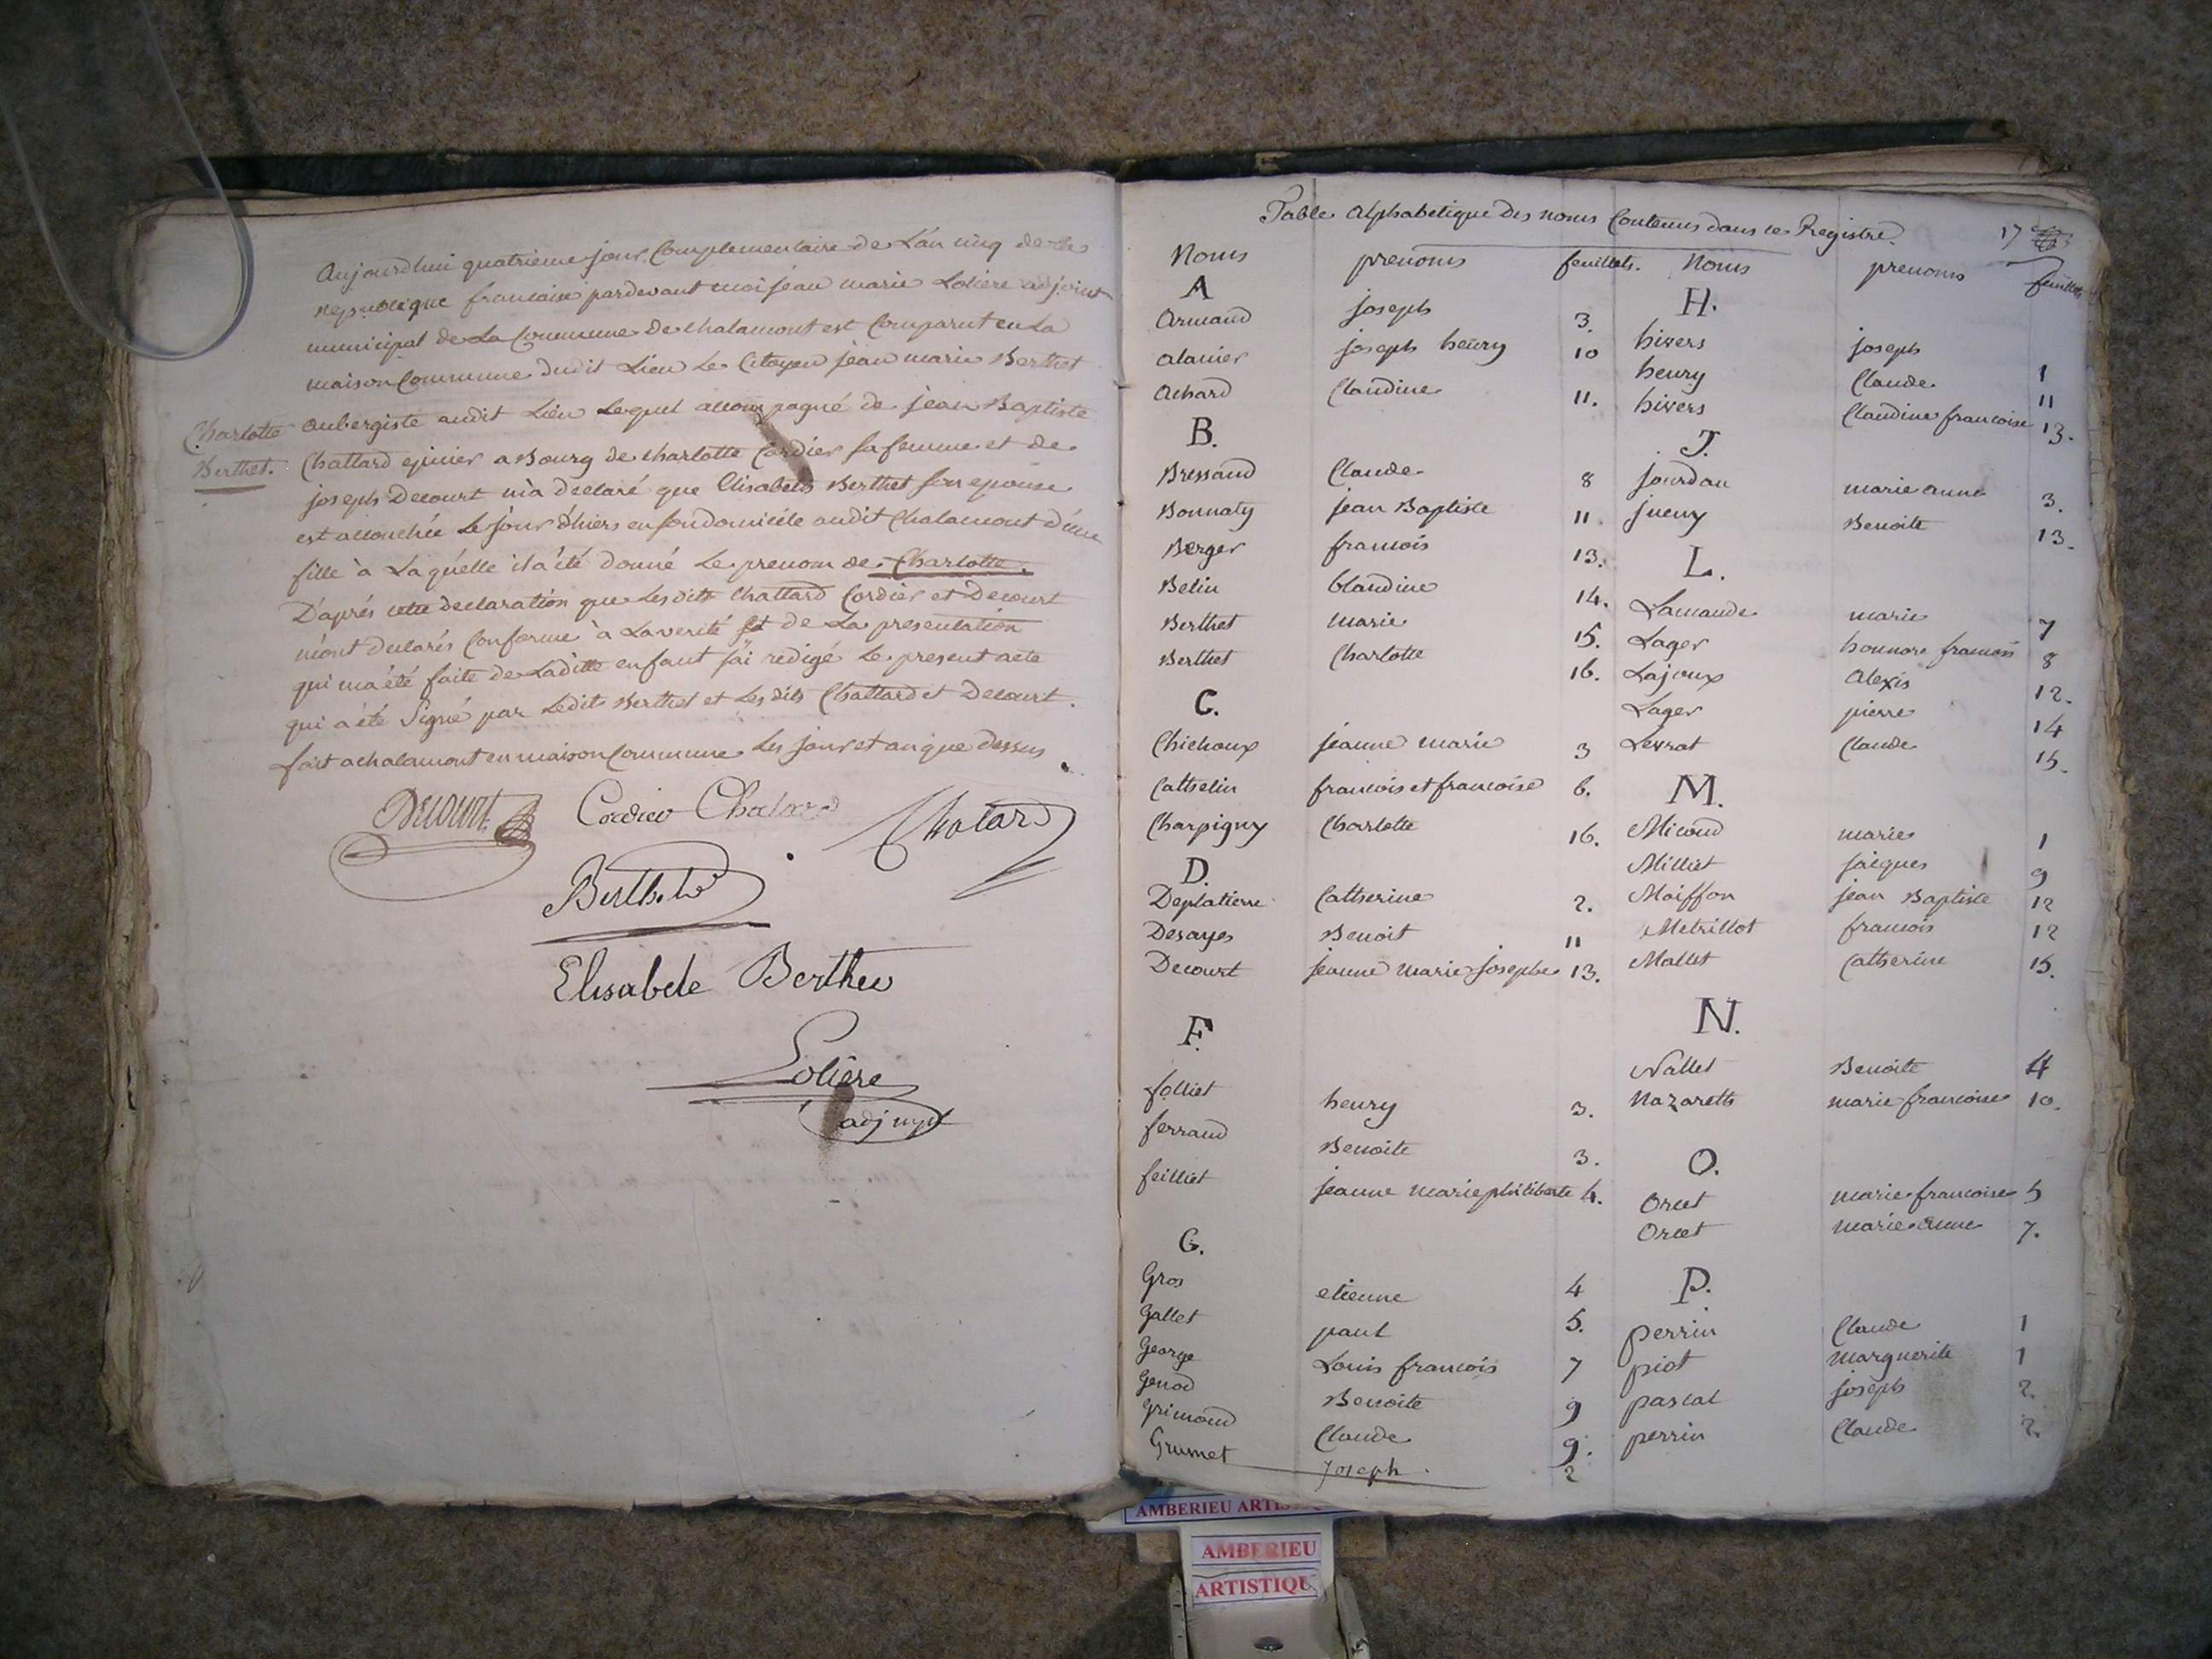 Aujourdhui quatrieme jour Complementaire de L'an cinq de la
republique francaise pardevant moi jean marie Loliere adjoint
municipal de La Commune de chalamont est Comparut en La
maison Commune dudit Lieu Le Citoyen jean marie Berthet
Charlotte
Berthet.
aubergiste audit Lieu Lequel accompagné de jean Baptiste
Chattard epicier a Bourg de charlotte Cordier sa femme et de
joseph Decourt m'a declaré que Elisabeth Berthet son epouse
est accouchée Le jour d'hiers en son domicile audit Chalamont d'une
fille à Laquelle il a été donné Le prenom de Charlotte.
D'aprés cette declaration que Les dits Chattard Cordier et Decourt
m'ont declarés Conforme à La verité et de La presentation
qui m'a été faite de Laditte enfant j'ai redigé Le present acte
qui a été Signé par Ledit Berthet et Les dits Chattard et Decourt.
fait a chalamont en maison Commune Les jour et an que dessus
Decourt Cordier Chatard Chatard
Berthet
Elisabete Berthet
Loliere
adj
Table Alphabetique Des noms Contenus dans ce Registre.
17
Noms prenoms feuillets. Noms prenoms feuillets
A
Armand joseph 3.
alanier joseph henry 10
Achard Claudine 11.
B.
Bressand Claude 8
Bonnaty jean Baptiste 11.
Berger francois 13.
Belin blandine 14.
Berthet marie 15.
Berthet Charlotte 16.
C.
Chichoux jeanne marie 3
Cathelin francois et francoise 6.
Charpigny Charlotte 16.
D.
Deplatiere Catherine 2.
Desayes Benoit 11
Decourt jeanne marie josephe 13.
F.
folliet henry 3.
ferrand Benoite 3.
feilliet jeanne marie philiberte 4.
G.
Gros etienne 4
Gallet paul 5.
George Louis francois 7
Genod Benoite 9
Grimond Claude 9.
Grumet Joseph. 2
H.
hivers joseph 1
henry Claude 11
hivers Claudine francoise 13.
J.
jourdan marie anne 3.
jueny Benoite 13.
L.
Lamande marie 7
Lager honnore francois 8
Lajoux Alexis 12.
Lager pierre 14
Levrat Claude 15.
M.
Micoud marie 1
Milliet jacques 9
Moiffon jean Baptiste 12
Metrillot francois 12
Mallet Catherine 15.
N.
Nallet Benoite 4
Nazareth marie francoise 10.
O.
Orcet marie francoise 5
Orcet marie anne 7.
P.
perrin Claude 1
piot marguerite 1
pascal joseph 2.
perrin Claude 2.
AMBERIEU
AMBERIEU
ARTISTIQU